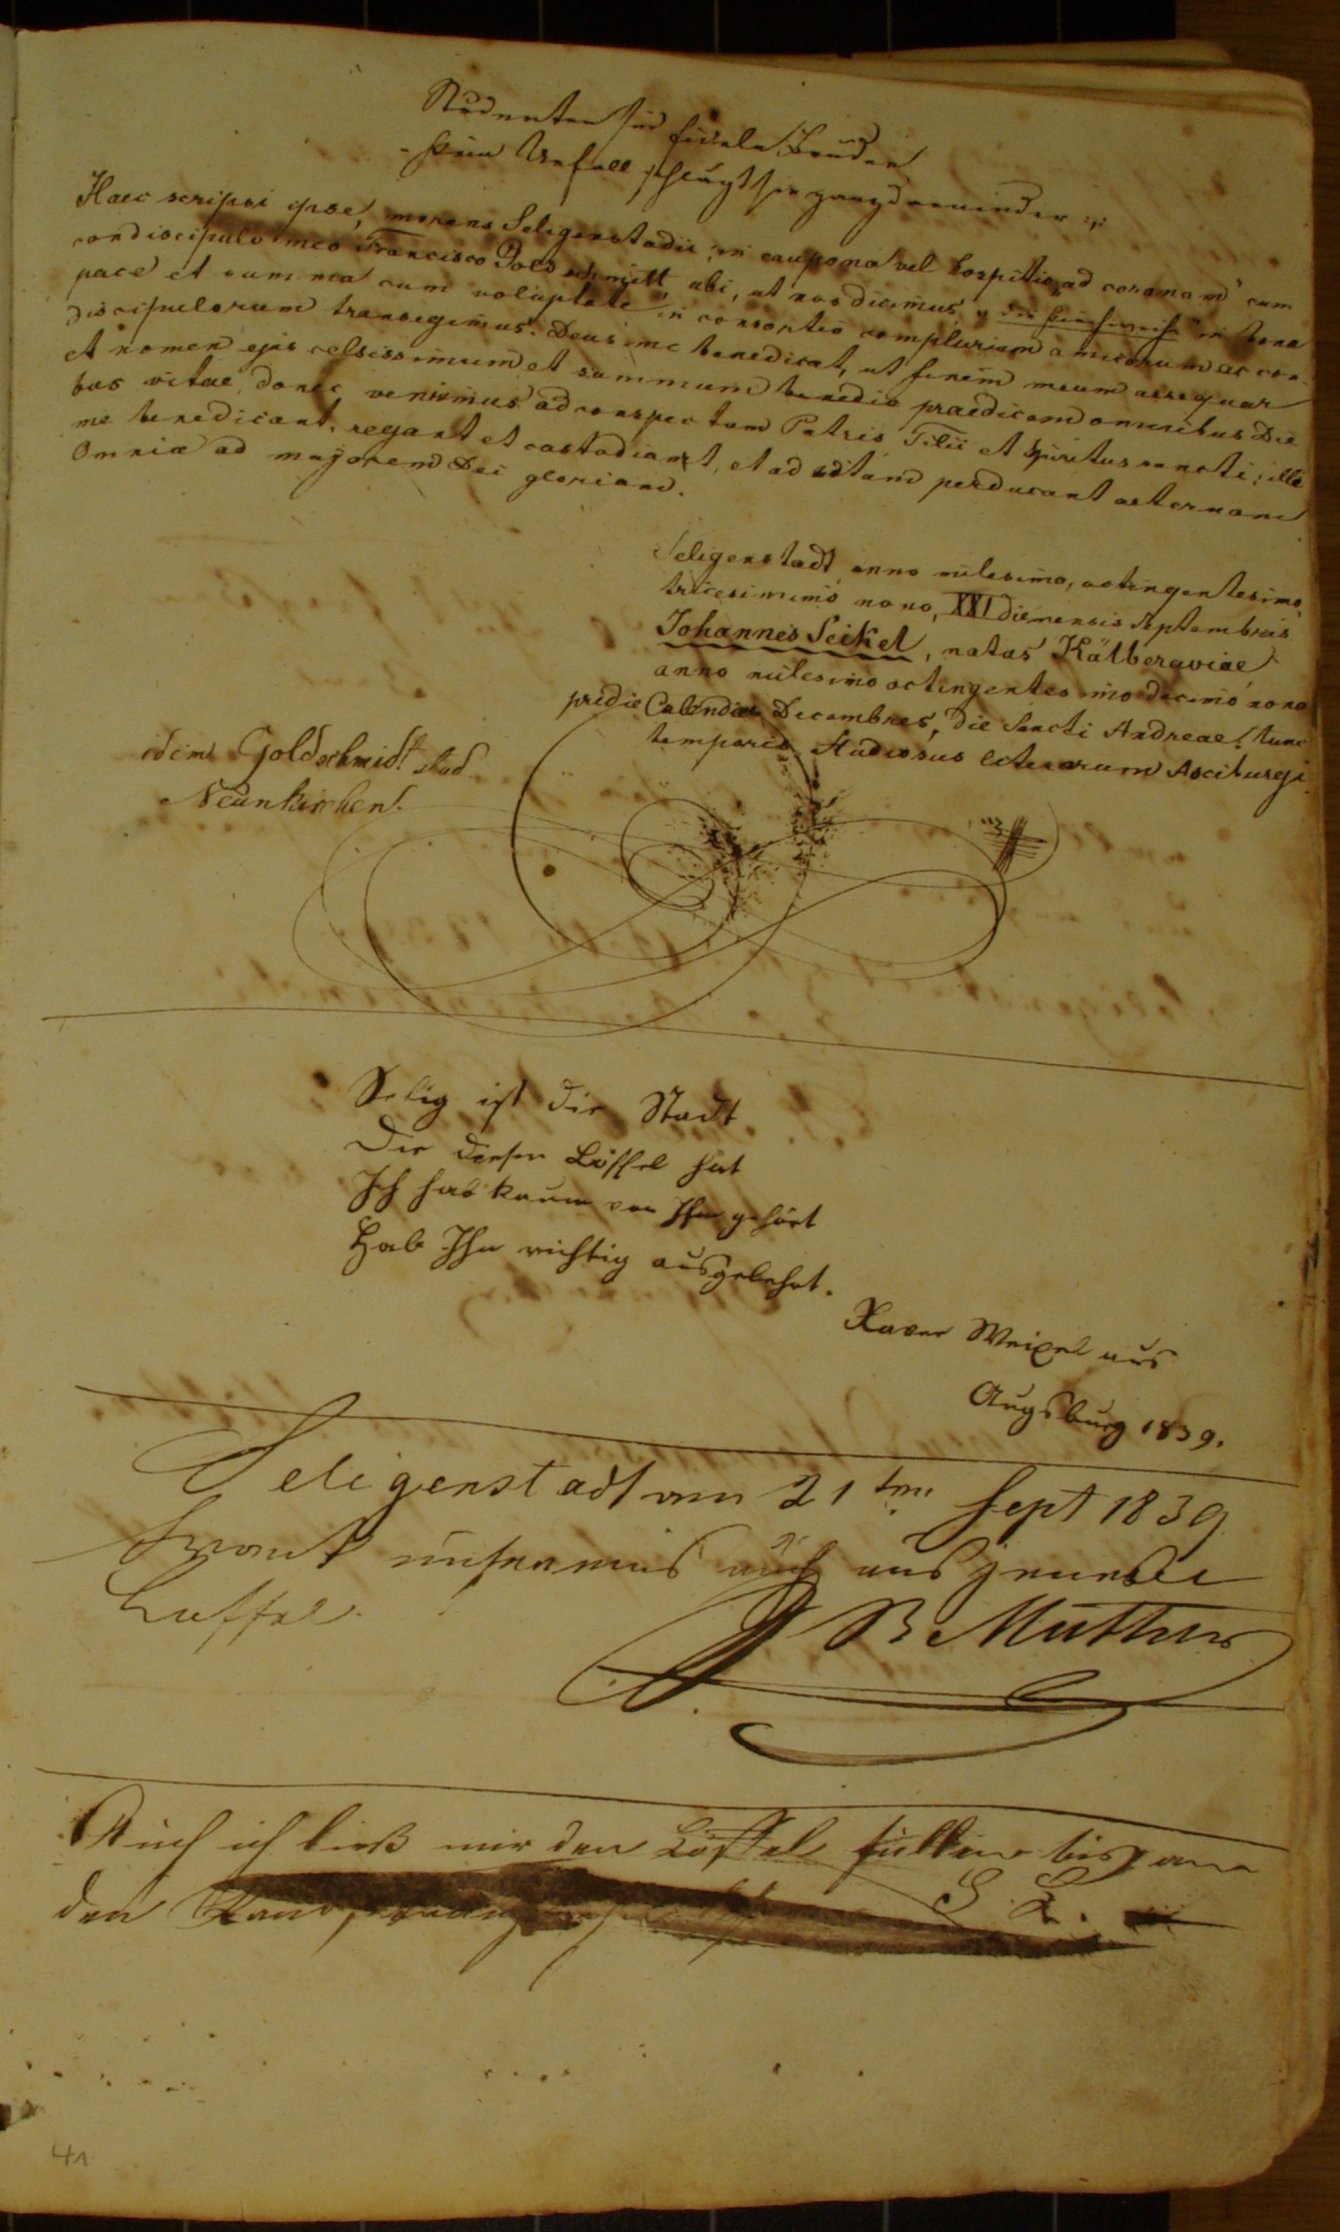 Studenten sind fidele Brüder
Kein Unfall schlägt sie ganz darnieder
Haec scripsi ipse, morans Seligenstadii, in caupona vel hospitio „ad coronam“ cum
condiscipulo meo Francisco Goldschmitt ubi, ut nos dicimus, „die“ in bona
pace et summa cum voluptate in consortio complurium amicorum ac con-
discipulorum transegimus. Deus me benedicat, ut finem meum assequar
et nomen ejus celsissimum et summum benedic praedicem omnibus die
bus vitae, donec venimus ad conspectum Patris Filii et Spiritus sancti; illi
me benedicant, regant et custodiant, et ad vitam perducant aeternam
Omnia ad majorem Dei gloriam.
Seligenstadt anno milesimo, octingentesimo,
tricesimimo nono, XXI die mensis Septembris
Johannes Seikel, natus Kälberaviae
anno milesimo octingentesimo decimo nono
pridie Calendas Decembres, die Sancti Andreae! tunc
temporis Studiosus literarum Asciburgi.
idem Goldschmidt stud.
Neunkirchen.
Selig ist die Stadt
Die diesen Löffel hat
Ich hab kaum von Ihm gehört
Hab Ihn richtig ausgelehrt.
Xaver Weixel aus
Augsburg 1839.
Seligenstadt am 21ten Sept 1839
trank auch aus
Löffel
J B Muther
Auch ich ließ mir den Löffel füllen bis an
den Rand
S. L.
41